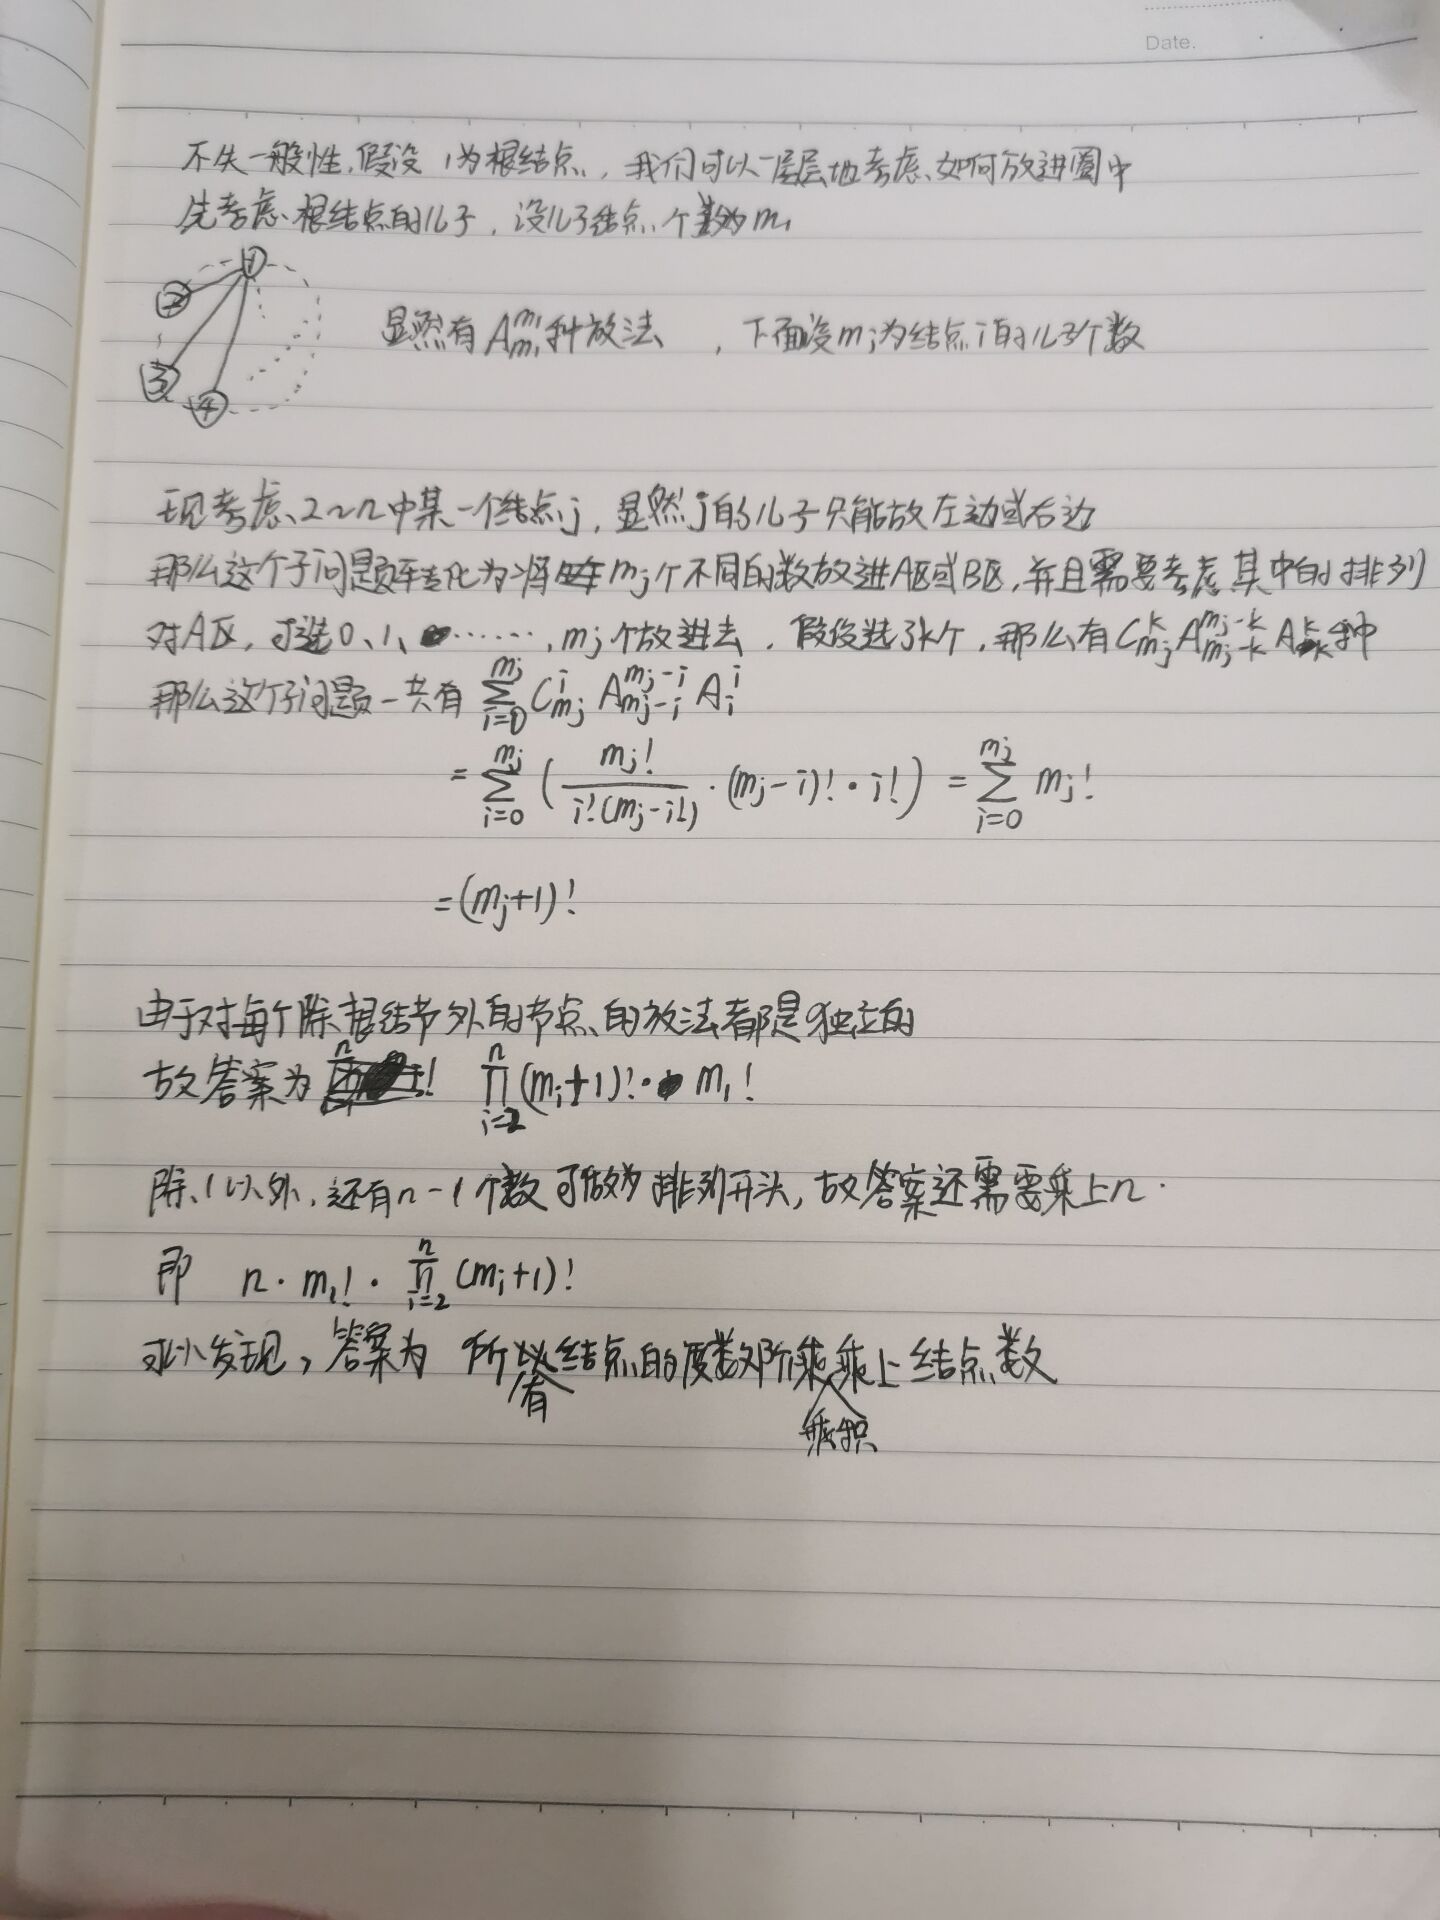 Date.
不失一般性,假设1为根结点,我们可以一层层地考虑如何放进圈中
先考虑根结点的儿子,设儿子结点个数为m₁
① ② ③ ④
显然有 A_{m₁}^{m₁} 种放法 ,下面设 m_i 为结点 i 的儿子个数
现考虑2~n中某一个结点j,显然j的儿子只能放左边或右边
那么这个子问题转化为将 m_j 个不同的数放进A区或B区,并且需要考虑其中的排列
对A区,可选0、1、……,m_j 个放进去,假设选了k个,那么有 C_{m_j}^{k} A_{m_j-k}^{m_j-k} A_{k}^{k} 种
那么这个子问题一共有 \sum_{i=0}^{m_j} C_{m_j}^{i} A_{m_j-i}^{m_j-i} A_{i}^{i}
= \sum_{i=0}^{m_j} ( \frac{m_j!}{i!(m_j-i!)} · (m_j-i)! · i! ) = \sum_{i=0}^{m_j} m_j!
= (m_j+1)!
由于对每个除根结节外的节点的放法都是独立的
故答案为 \prod_{i=2}^{n} (m_i+1)! · m₁!
除1以外,还有n-1个数可做为排列开头,故答案还需要乘上n.
即 n · m₁! · \prod_{i=2}^{n} (m_i+1)!
可以发现,答案为 所有结点的度数阶乘乘积乘上结点数